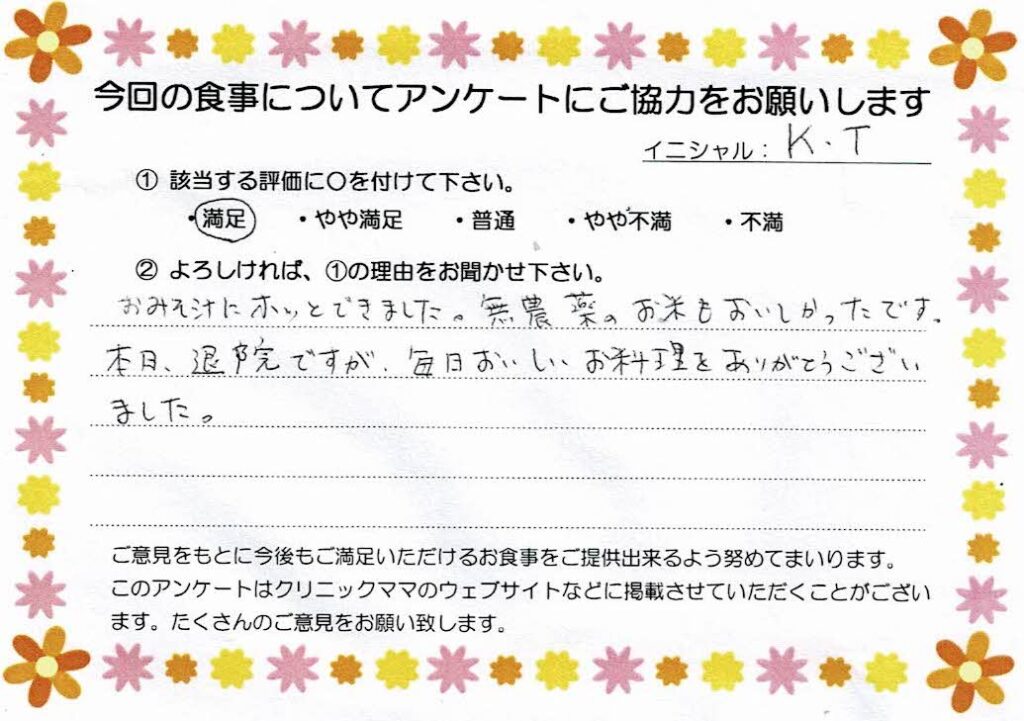 今回の食事についてアンケートにご協力をお願いします
イニシャル： K.T
① 該当する評価に〇を付けて下さい。
・満足 ・やや満足 ・普通 ・やや不満 ・不満
② よろしければ、①の理由をお聞かせ下さい。
おみそ汁にホッとできました。無農薬のお米もおいしかったです。
本日、退院ですが、毎日おいしいお料理をありがとうござい
ました。
ご意見をもとに今後もご満足いただけるお食事をご提供出来るよう努めてまいります。
このアンケートはクリニックママのウェブサイトなどに掲載させていただくことがござい
ます。たくさんのご意見をお願い致します。